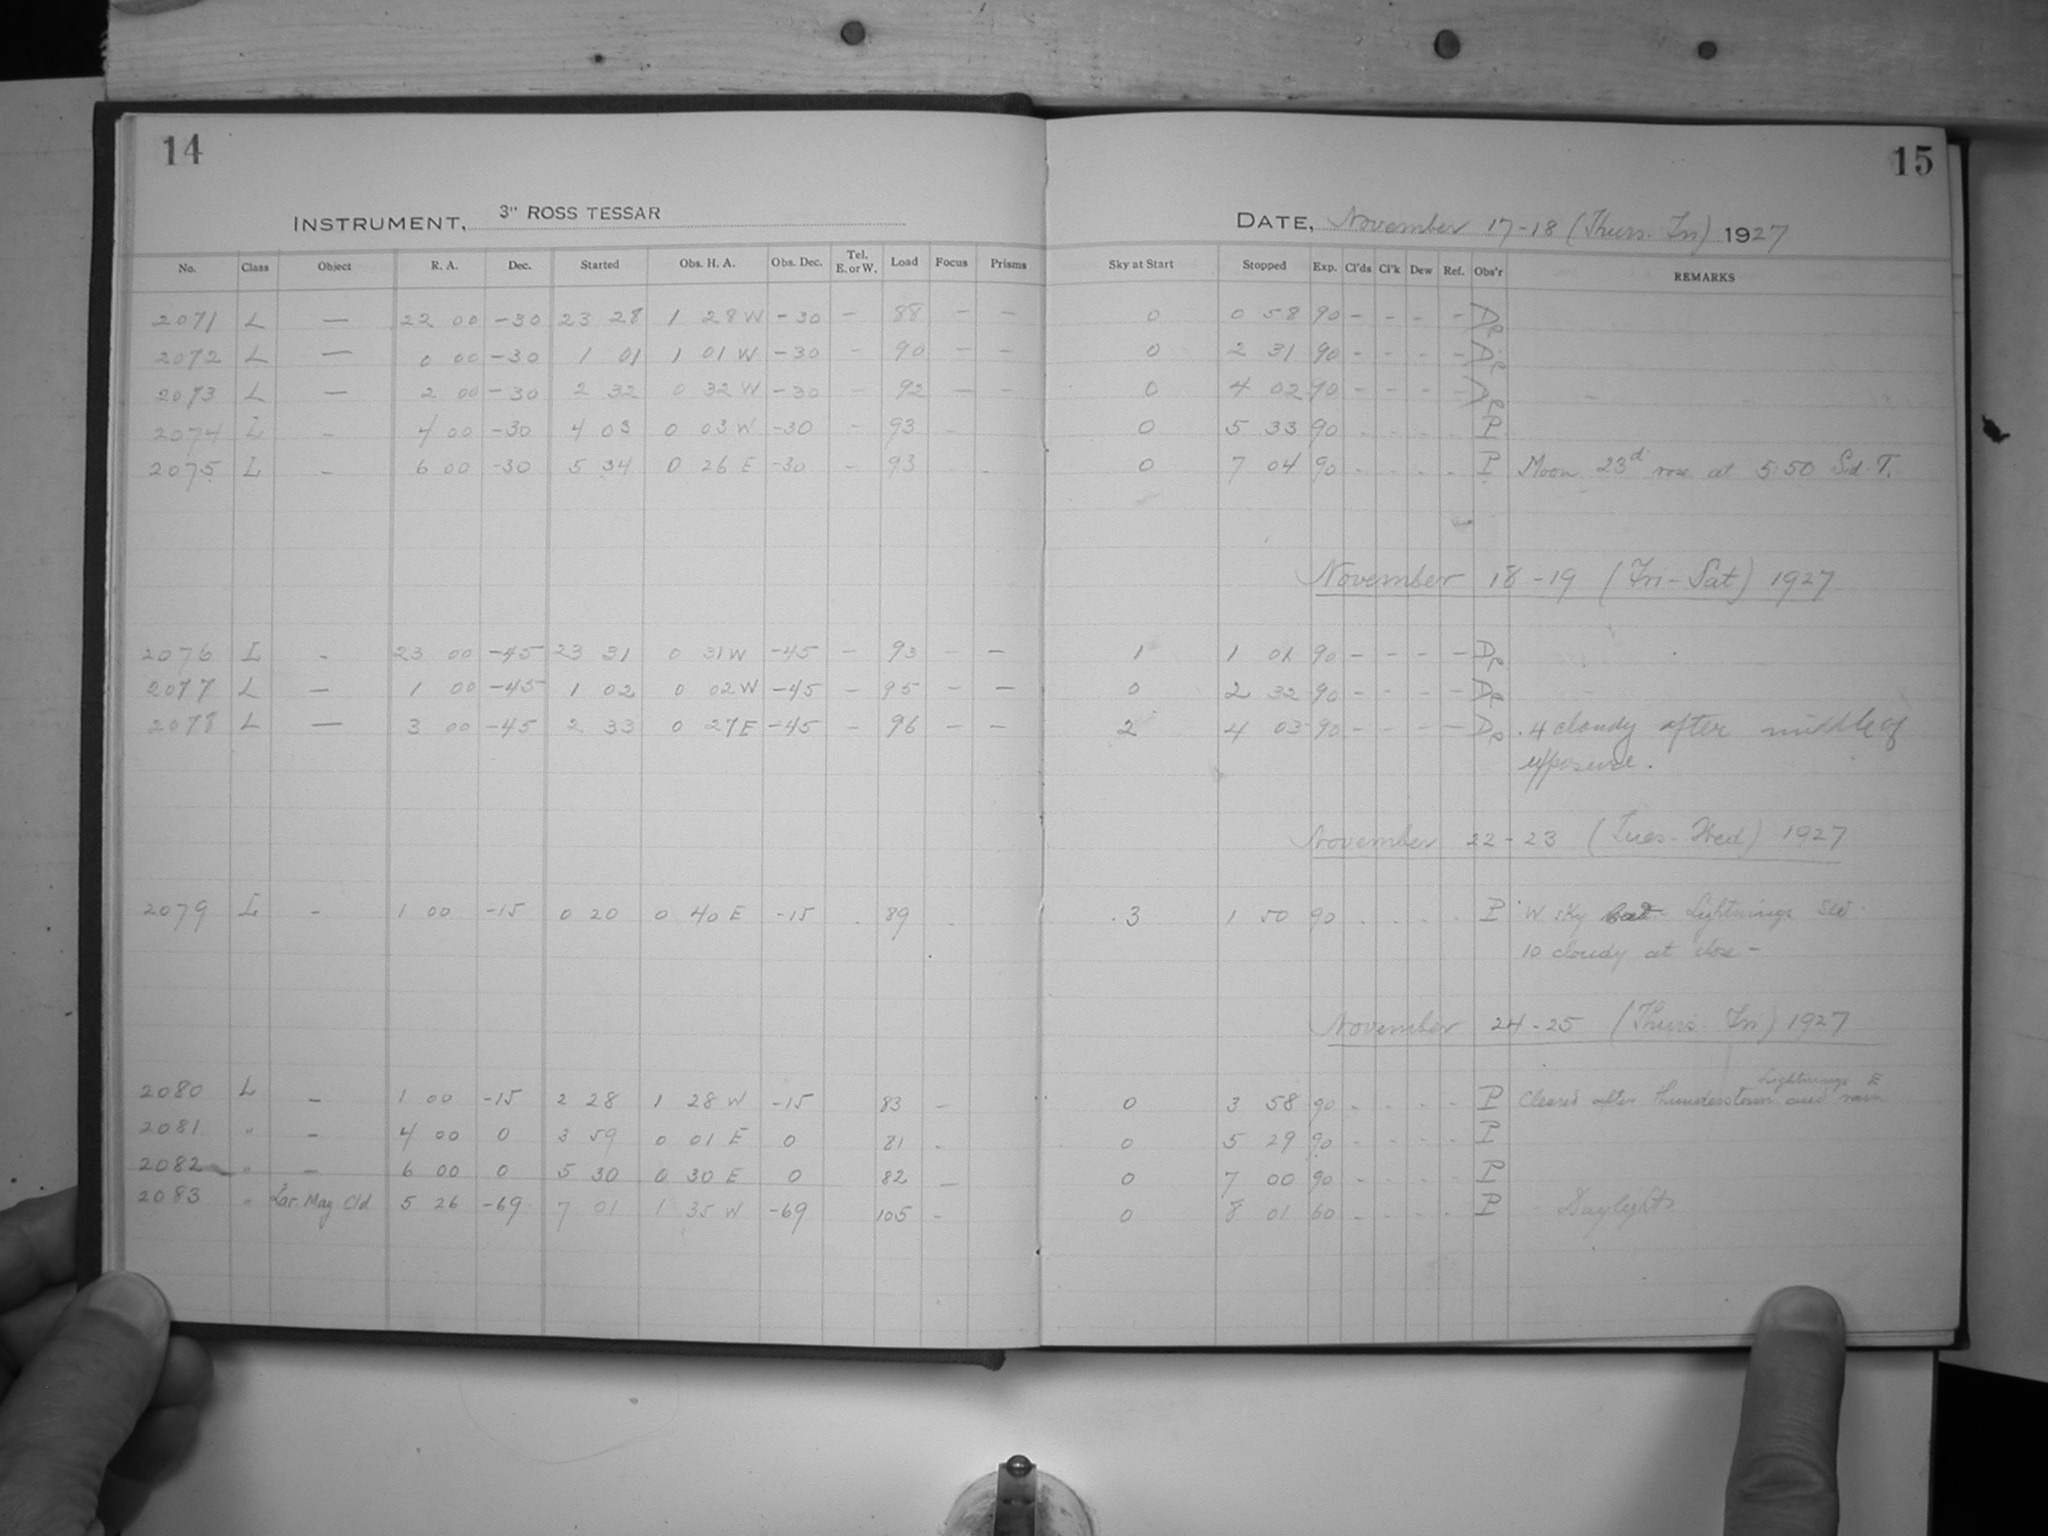 14
15
INSTRUMENT, 3" ROSS TESSAR
DATE, November 17-18 (Thurs-Fri) 1927
No. Class Object R. A. Dec. Started Obs. H. A. Obs. Dec. Tel. E. or W. Load Focus Prisms Sky at Start Stopped Exp. Cl'ds Cl'k Dew Ref. Obs'r REMARKS
2071 L — 22 00 -30 23 28 1 28 W -30 — 88 — — 0 0 58 90 - - - - DP
2072 L — 0 00 -30 1 01 1 01 W -30 — 90 — — 0 2 31 90 - - - - DP
2073 L — 2 00 -30 2 32 0 32 W -30 — 92 — — 0 4 02 90 - - - - DP
2074 L - 4 00 -30 4 03 0 03 W -30 - 93 - 0 5 33 90 - - - - P
2075 L - 6 00 -30 5 34 0 26 E -30 - 93 - 0 7 04 90 - - - - P Moon 23d rose at 5 50 Sid. T.
November 18-19 (Fri-Sat) 1927
2076 L - 23 00 -45 23 31 0 31 W -45 — 93 — — 1 1 01 90 - - - - DP
2077 L — 1 00 -45 1 02 0 02 W -45 — 95 — — 0 2 32 90 - - - - DP
2078 L — 3 00 -45 2 33 0 27 E -45 — 96 — — 2 4 03 90 - - - - DP .4 cloudy after middle of
exposure.
November 22-23 (Tues-Wed) 1927
2079 L - 1 00 -15 0 20 0 40 E -15 . 89 . 3 1 50 90 . . . . P W sky bad - Lightnings SW.
10 cloudy at close -
November 24-25 (Thurs-Fri) 1927
Lightnings E
2080 L - 1 00 -15 2 28 1 28 W -15 83 - 0 3 58 90 - - - - P Cleared after thunderstorm and rain
2081 " - 4 00 0 3 59 0 01 E 0 81 - 0 5 29 90 - - - - P
2082 " - 6 00 0 5 30 0 30 E 0 82 - 0 7 00 90 - - - - P
2083 " Lar. Mag Cld 5 26 -69 7 01 1 35 W -69 105 - 0 8 01 60 - - - - P - Daylight